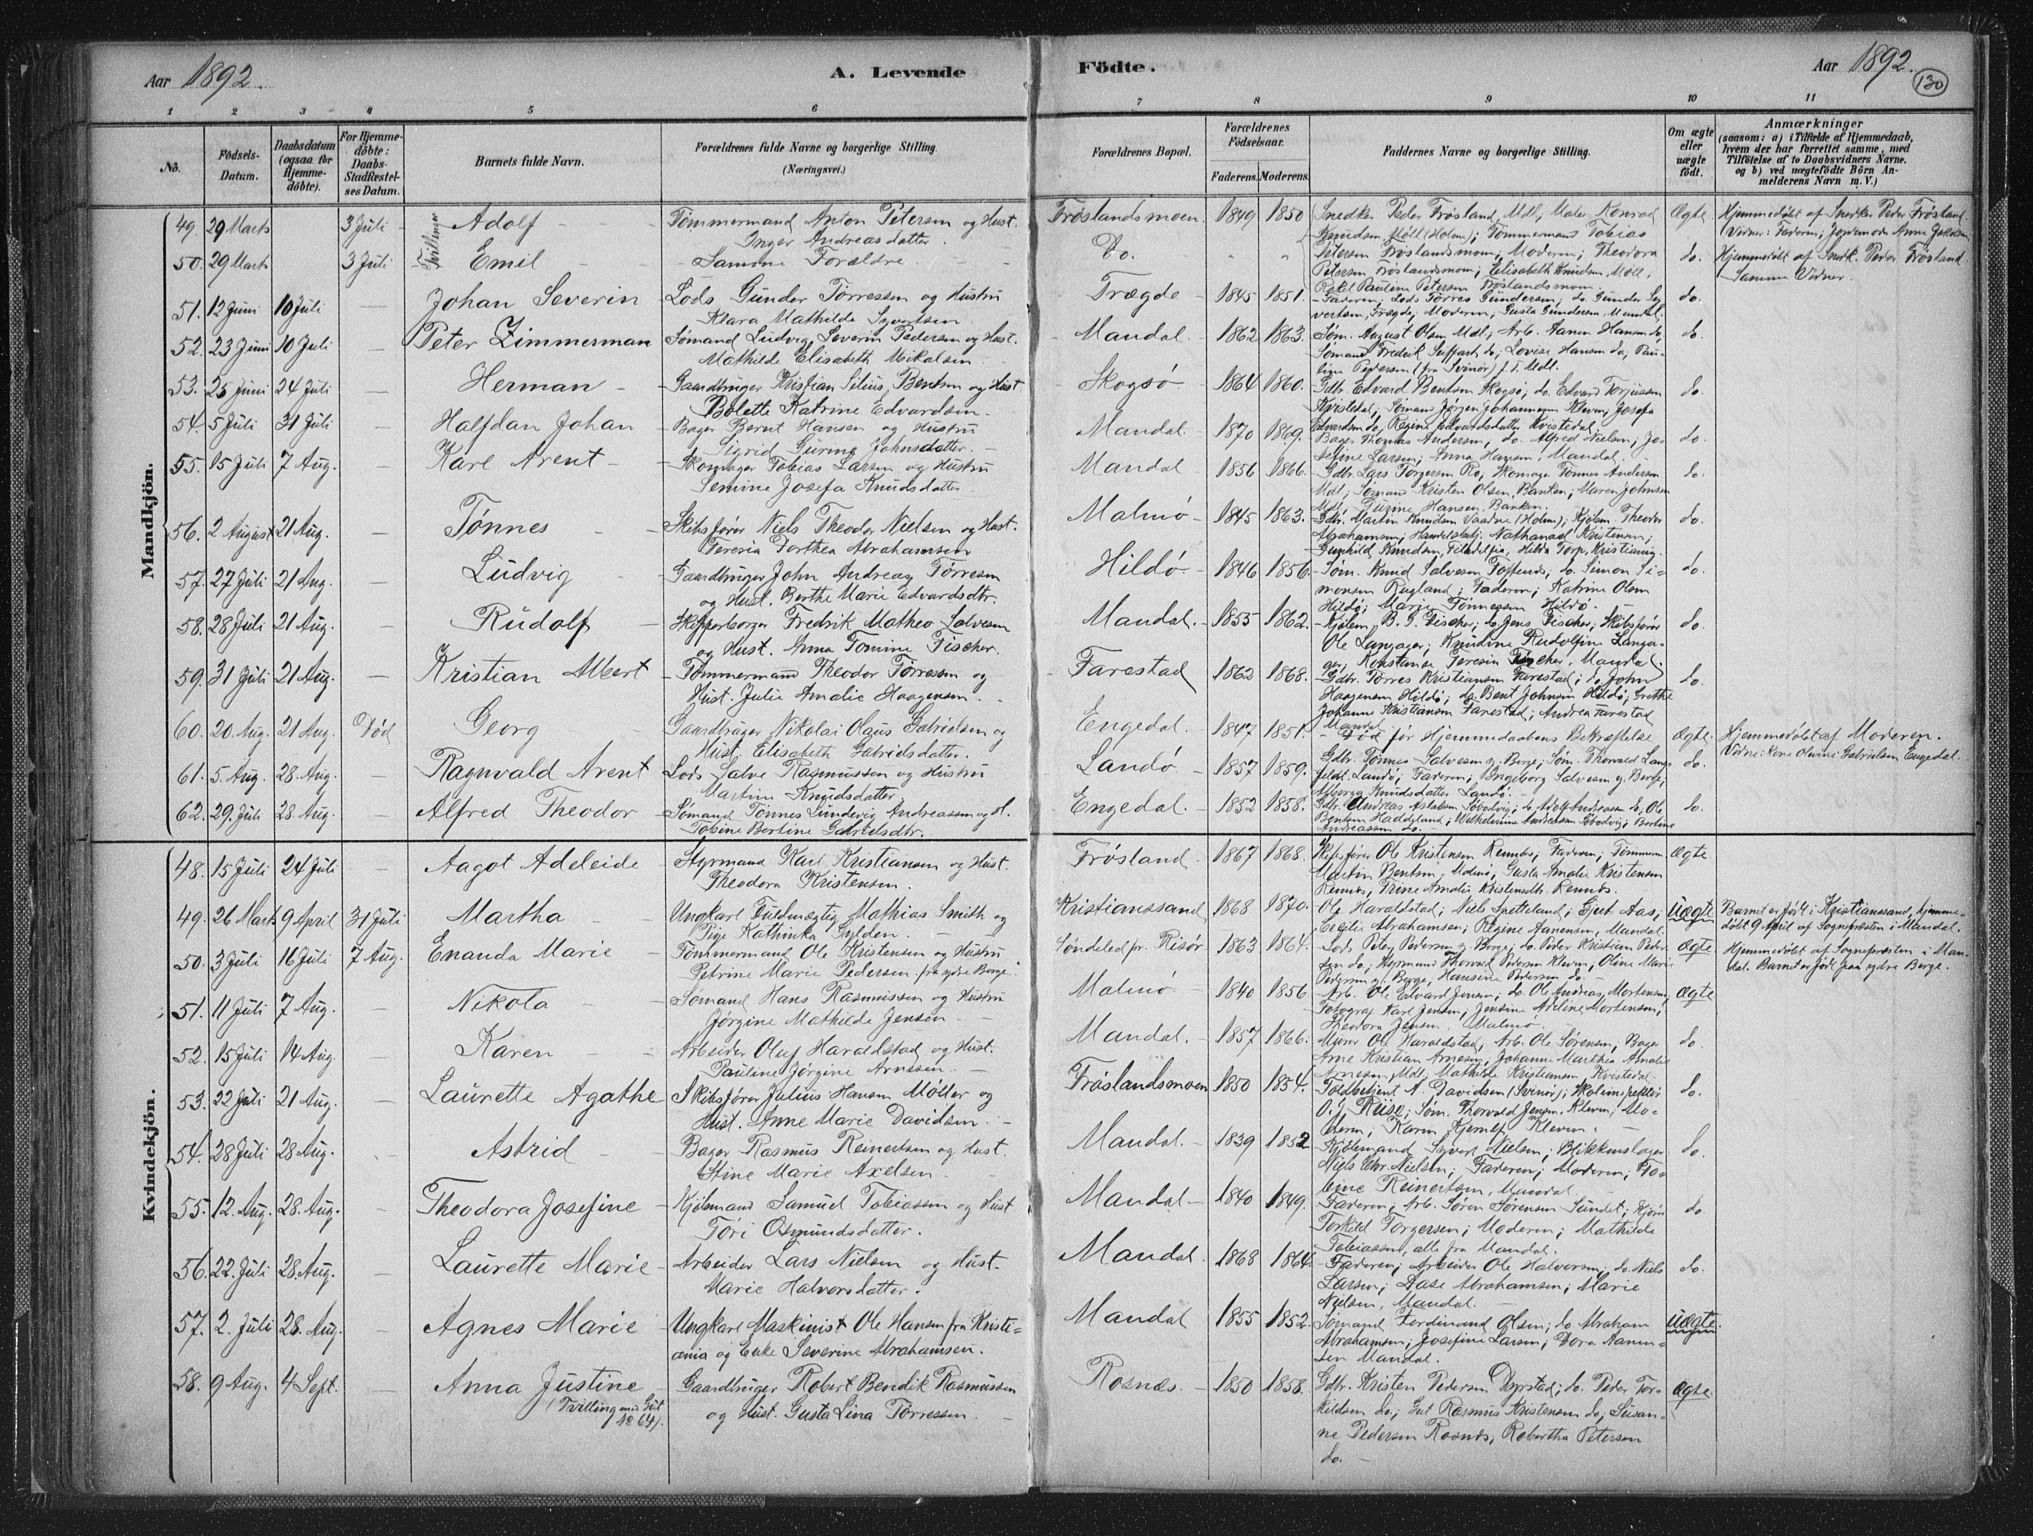 Aar 1892.
A. Levende
Födte.
Aar 1892.
130
1 2 3 4 5 6 7 8 9 10 11
No.
Födsels-Datum.
Daabsdatum (ogsaa for Hjemmedöbte).
For Hjemmedöbte: Daabs-Stadfæstelses Datum.
Barnets fulde Navn.
Forældrenes fulde Navne og borgerlige Stilling
(Næringsvei.)
Forældrenes Bopæl.
Forældrenes Födselsaar.
Faderens. Moderens.
Faddernes Navne og borgerlige Stilling.
Om ægte eller uægte födt.
Anmærkninger
(saasom: a) i Tilfælde af Hjemmedaab, hvem der har forrettet samme, med Tilföielse af to Daabsvidners Navne, og b) ved uægtefödte Börn Anmelderens Navn m. V.)
Mandkjön.
49. 29 Marts 3 Juli Tvillinger Adolf Tømmermand Anton Petersen og Hust. Inger Andreasdatter. Frøslandsmoen 1849 1850 Snedker Peder Frøsland, Mdl, Maler Konrad Knudsen, Møll (Holm); Tømmermand Tobias Ægte Hjemmedøbt af Snedker Peder Frøsland Vidner: Faderen; Jordemoder Anne Jakobsen
50. 29 Marts 3 Juli Emil Samme Forældre Do. " " Petersen Frøslandsmoen; Moderen; Theodora Petersen Frøslandsmoen; Elisabeth Knudsen, Møll, Pauline Petersen Frøslandsmoen. do. Hjemmedøbt af Snedk. Peder Frøsland Samme Vidner.
51. 12 Juni 10 Juli — Johan Severin Lods Gunder Tørressen og Hustru Klara Mathilde Syvertsen. Trægde 1845 1851. Faderen, Lods Tørres Gundersen; do. Gunder Syvertsen, Trægde, Moderen, Gusta Gundersen, Mandal. do.
52. 23 Juni 10 Juli — Peter Zimmerman Sømand Ludvig Severin Pedersen og Hust. Mathilde Elisabeth Mikalsen Mandal 1862 1863. Søm. August Olsen Mdl; Arb. Aanen Hansen do, Sømand Fredrik Seiffart do, Lovise Hansen do, Pauline Pedersen (fra Svinør) f. t. Mdl. do.
53. 25 Juni 24 Juli — Herman Gaardbruger Kristian Silius Bentsen og Hust Bolette Katrine Edvardsen. Skogsø 1864 1860. Gdbr. Edvard Bentsen Skogsø, do. Edvard Torjussen Kvistedal, Sømand Jørgen Johannesen Kleven, Josefa Edvardsen do, Regine Edvardsdatter Kvistedal. do.
54. 5 Juli 31 Juli — Halfdan Johan Bager Bernt Hansen og Hustru Sigrid Gurine Johnsdatter. Mandal 1870 1869. Bager Thomas Andersen, do. Alfred Nielsen, Josefine Larsen; Anna Hansen, Mandal. do.
55. 15 Juli 7 Aug. — Karl Arent Skomager Tobias Larsen og Hustru Semine Josefa Knudsdatter. Mandal 1856 1866. Gdbr. Lars Torgersen Ro, Skomager Tønnes Andersen Mdl, Sømand Kristen Olsen, Banken; Maren Johnsen Mdl, Gurine Hansen, Banken. do.
56. 2 August 21 Aug. — Tønnes Skibsfører Niels Theodor Nielsen og Hust. Teresia Dorthea Abrahamsen Malmø 1845 1863. Gdbr. Martin Knudsen (Holm); Kjøbm. Theodor Abrahamsen; Handelsbetj. Nathanael Kristensen, Gunhild Knudsen, Filadelfia, Hilda Torp, Kristiania. do.
57. 27 Juli 21 Aug. — Ludvig Gaardbruger John Andreas Tørresen og Hust. Berthe Marie Edvardsdtr. Hildø 1846 1856. Søm. Knud Salvesen; do. Simon Simonsen; Faderen; Katrine Olsen Hildø; Marie Tønnessen Hildø. do.
58. 28 Juli 21 Aug. — Rudolf Skipperborger Fredrik Matheo Salvesen og Hust. Anna Tomine Fischer. Mandal 1855 1862. Kjøbm. B. G. Fischer; do Jens Fischer; Skibsfører Ole Langager; Knudine Rudolfine Langager, Konstanse Teresia Fischer, Mandal. do.
59. 31 Juli 21 Aug. — Kristian Albert Tømmermand Theodor Tørresen og Hust. Julie Amalie Haagensen. Farestad 1862 1868. Gdbr. Tørres Kristiansen Farestad; do. John Haagensen Hildø; do. Bent Johnsen Hildø, Grethe Johanne Kristiansen Farestad; Andrea Farestad Mandal do.
60. 20 Aug. 21 Aug. Død Georg Gaardbruger Nikolai Olaus Gabrielsen og Hust. Elisabeth Gabrielsdatter. Engedal 1847 1851. Død før Hjemmedaabens Bekræftelse Ægte. Hjemmedøbt af Moderen. Vidne: Kone Olivine Gabrielsen Engedal.
61. 5 Aug. 28 Aug. — Ragnvald Arent Lods Salve Rasmussen og Hustru Martine Knudsdatter Landø 1857 1859. Gdbr. Tønnes Salvesen y. Berge; Søm. Thorvald Langfeldt Landø, Faderen; Ingeborg Salvesen y. Berge, Knudsdatter Landø. do.
62. 29 Juli 28 Aug. — Alfred Theodor Sømand Tønnes Lundevig Andreassen og H. Tobine Bertine Gabrielsdtr. Engedal. 1852 1858. Gdbr. Andreas Aslaksen; do. Adolf Andreassen do, Ole Bentsen Haddeland; Wilhelmine Andersen; Bertine Andreassen do. do.
Kvindekjön.
48. 15 Juli 24 Juli — Aagot Adeleide Styrmand Karl Kristiansen og Hust. Theodora Kristensen. Frøsland 1867 1868. Skibsfører Ole Kristensen; Faderen; Tømmerm. Martin Bentsen, Malmø, Gusta Amalie Kristensen, Trine Amalie Kristensdtr. Ægte
49. 26 Marts 9 April 31 Juli Martha Ungkarl Fuldmægtig Mathias Smith og Pige Kathinka Gylden. Kristianssand 1868 1870. Ole Haraldstad; Niels Spetteland; Gjert Aas; Cecilie Abrahamsen; Regine Aanensen, Mandal. Uægte Barnet er født i Kristianssand, hjemmedøbt 9 April af Sognepræsten i Mandal.
50. 3 Juli 16 Juli 7 Aug. Enanda Marie Tømmermand Ole Kristensen og Hustru Petrine Marie Pedersen fra ydre Berge. Søndeled pr. Risør 1863 1864. Lods Peder Pedersen y. Berge; do. Peder Kristian Pedersen do; Styrmand Thorvald Pedersen Kleven, Oline Marie Pedersen y. Berge, Hansine Pedersen do. Ægte Hjemmedøbt af Sognepræsten i Mandal. Barnet er født paa ydre Berge.
51. 11 Juli 7 Aug. — Nikola Sømand Hans Rasmussen og Hustru Jørgine Mathilde Jensen. Malmø 1840 1856 Arb. Ole Edvard Jensen; do. Ole Andreas Mortensen, Fotograf Karl Jensen, Jensine Adeline Mortensen, Theodora Jensen. Malmø Ægte
52. 15 Juli 14 Aug. — Karen Arbeider Oluf Haraldstad og Hust. Pauline Jørgine Arnesen. Mandal. 1857 1866. Murer Ole Haraldstad, Arb. Ole Sørensen, Bager Arne Kristian Arnesen, Johanne Marthea Amalie Arnesen, Mdl, Mathilde Kristiansen Kvistedal. do.
53. 22 Juli 21 Aug. — Laurette Agathe Skibsfører Julius Hansen Møller og Hust. Anne Marie Davidsen. Frøslandsmoen 1850 1854. Toldbetjent A. Davidsen (Svinør); Skoleinspektør O. J. Riise; Søm. Thorvald Jensen, Kleven; Moderen; Karen Kleven. do.
54. 28 Juli 28 Aug. — Astrid Bager Rasmus Reinertsen og Hust. Stine Marie Axelsen. Mandal. 1839 1852 Kjøbmand Syvert Nielsen; Blikkenslager Niels Chr. Nielsen; Faderen; Moderen; Tobine Reinertsen, Mandal do.
55. 12. Aug. 28. Aug. — Theodora Josefine Kjøbmand Samuel Tobiassen og Hust Tøri Osmundsdatter. Mandal 1840 1849. Faderen; Arb. Søren Sørensen Sundet; Torkild Torgersen; Moderen; Mathilde Tobiassen, alle fra Mandal. do.
56. 22. Juli 28. Aug. — Laurette Marie Arbeider Lars Nielsen og Hust. Marie Halvorsdatter. Mandal. 1868 1864. Faderen; Arbeider Ole Halvorsen; do. Niels Larsen; Aase Abrahamsen; Marie Nielsen, Mandal. do.
57. 2. Juli 28. Aug. — Agnes Marie Ungkarl Maskinist Ole Hansen fra Kristiania og Enke Severine Abrahamsen. Mandal 1855 1852. Sømand Ferdinand Olsen; do. Abraham Abrahamsen; Josefine Larsen; Dora Aanensen Mandal. Uægte.
58. 9 Aug. 4 Sept. — Anna Justine (Tvilling med Gut № 64). Gaardbruger Robert Bendik Rasmussen og Hust. Gusta Lina Tørressen. Rosnæs. 1850 1858. Gdbr. Kristen Pedersen Dyrstad; do. Peder Torkildsen do; Gut Rasmus Kristensen do; Susanne Pedersen Rosnæs, Robertha Petersen do. Ægte